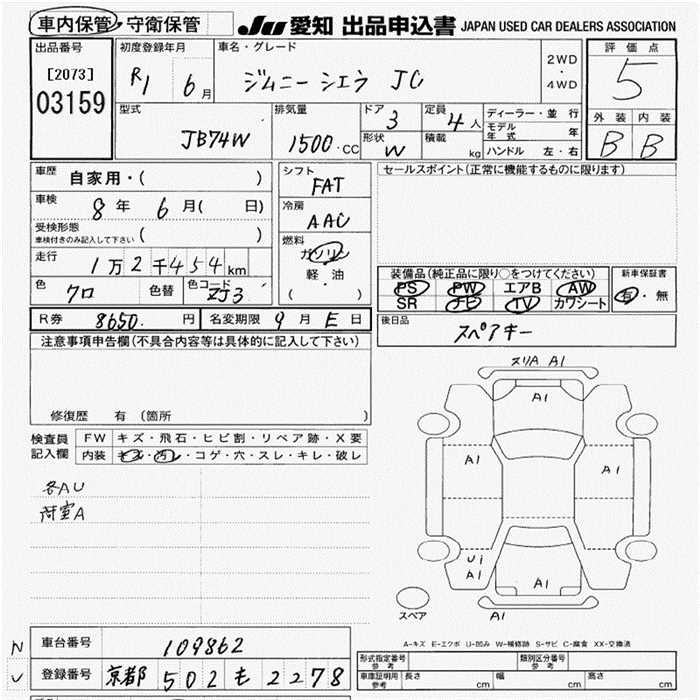 車内保管・守衛保管 JU 愛知 出品申込書 JAPAN USED CAR DEALERS ASSOCIATION
出品番号 初度登録年月 車名・グレード 評価点
[2073] R1 6月 ジムニーシエラ JC 2WD・4WD 5
03159
型式 排気量 ドア 3 定員 4人 ディーラー・並行 外装 内装
JB74W 1500・CC 形状 W 積載 kg モデル年式 年 B B
ハンドル 左・右
車歴 自家用・( ) シフト FAT セールスポイント(正常に機能するものに限ります)
車検 8年 6月( 日) 冷房 AAC
受検形態 車検付きのみ記入して下さい ( )
燃料 ガソリン 軽・油 ( ・ )
走行 1万2千454km
色 クロ 色替 色コード ZJ3
装備品(純正品に限り○をつけてください) 新車保証書
PS PW エアB AW 有・無
SR ナビ TV カワシート
R券 8650. 円 名変期限 9月 E日 後日品 スペアキー
注意事項申告欄(不具合内容等は具体的に記入して下さい)
修復歴 有(箇所 )
検査員記入欄 FW キズ・飛石・ヒビ割・リペア跡・X要
内装 キズ・汚レ・コゲ・穴・スレ・キレ・破レ
各AU
荷室A
スリA A1
A1
A1
A1
Ui
A1
A1
スペア
A-キズ E-エクボ U-凹み W-補修跡 S-サビ C-腐食 XX-交換済
車台番号 109862
登録番号 京都 502 も 2278
形式指定番号 参考 類別区分番号 参考
車庫証明用 参考 長さ cm 幅 cm 高さ cm